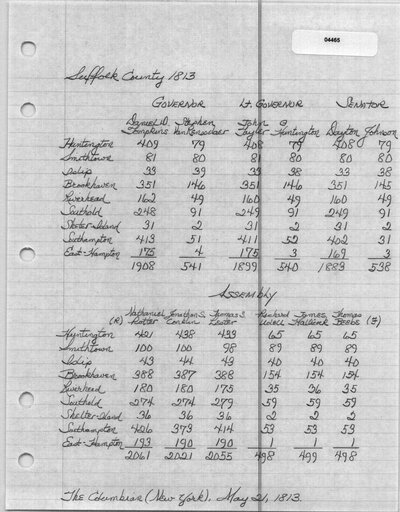 04465
Suffolk County 1813
GOVERNOR LT. GOVERNOR SENATOR
Daniel D. Stephen John G
Tompkins Van Rensselaer Tayler Huntington Dayton Johnson
Huntington 409 79 408 79 408 79
Smithtown 81 80 81 80 80 80
Islip 33 39 33 38 33 38
Brookhaven 351 146 351 146 351 145
Riverhead 162 49 160 49 160 49
Southold 248 91 249 91 249 91
Shelter Island 31 2 31 2 31 2
Southampton 413 51 411 52 402 31
East-Hampton 175 4 175 3 169 3
1908 541 1899 540 1883 538
ASSEMBLY
Nathaniel Jonathan S. Thomas S. Richard James Thomas
(R) Potter Conklin Lester Udell Hallock Tebbs (F)
Huntington 421 438 433 65 65 65
Smithtown 100 100 98 89 89 89
Islip 43 44 43 40 40 40
Brookhaven 388 387 388 154 154 154
Riverhead 180 180 175 35 36 35
Southold 274 274 279 59 59 59
Shelter-Island 36 36 36 2 2 2
Southampton 426 373 414 53 53 53
East-Hampton 193 190 190 1 1 1
2061 2021 2055 498 499 498
The Columbian (New York). May 21, 1813.